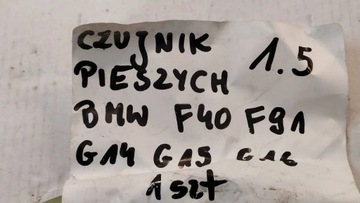 CZUJNIK 1.5
PIESZYCH
BMW F40 F91
G14 G15 G16
1 szt